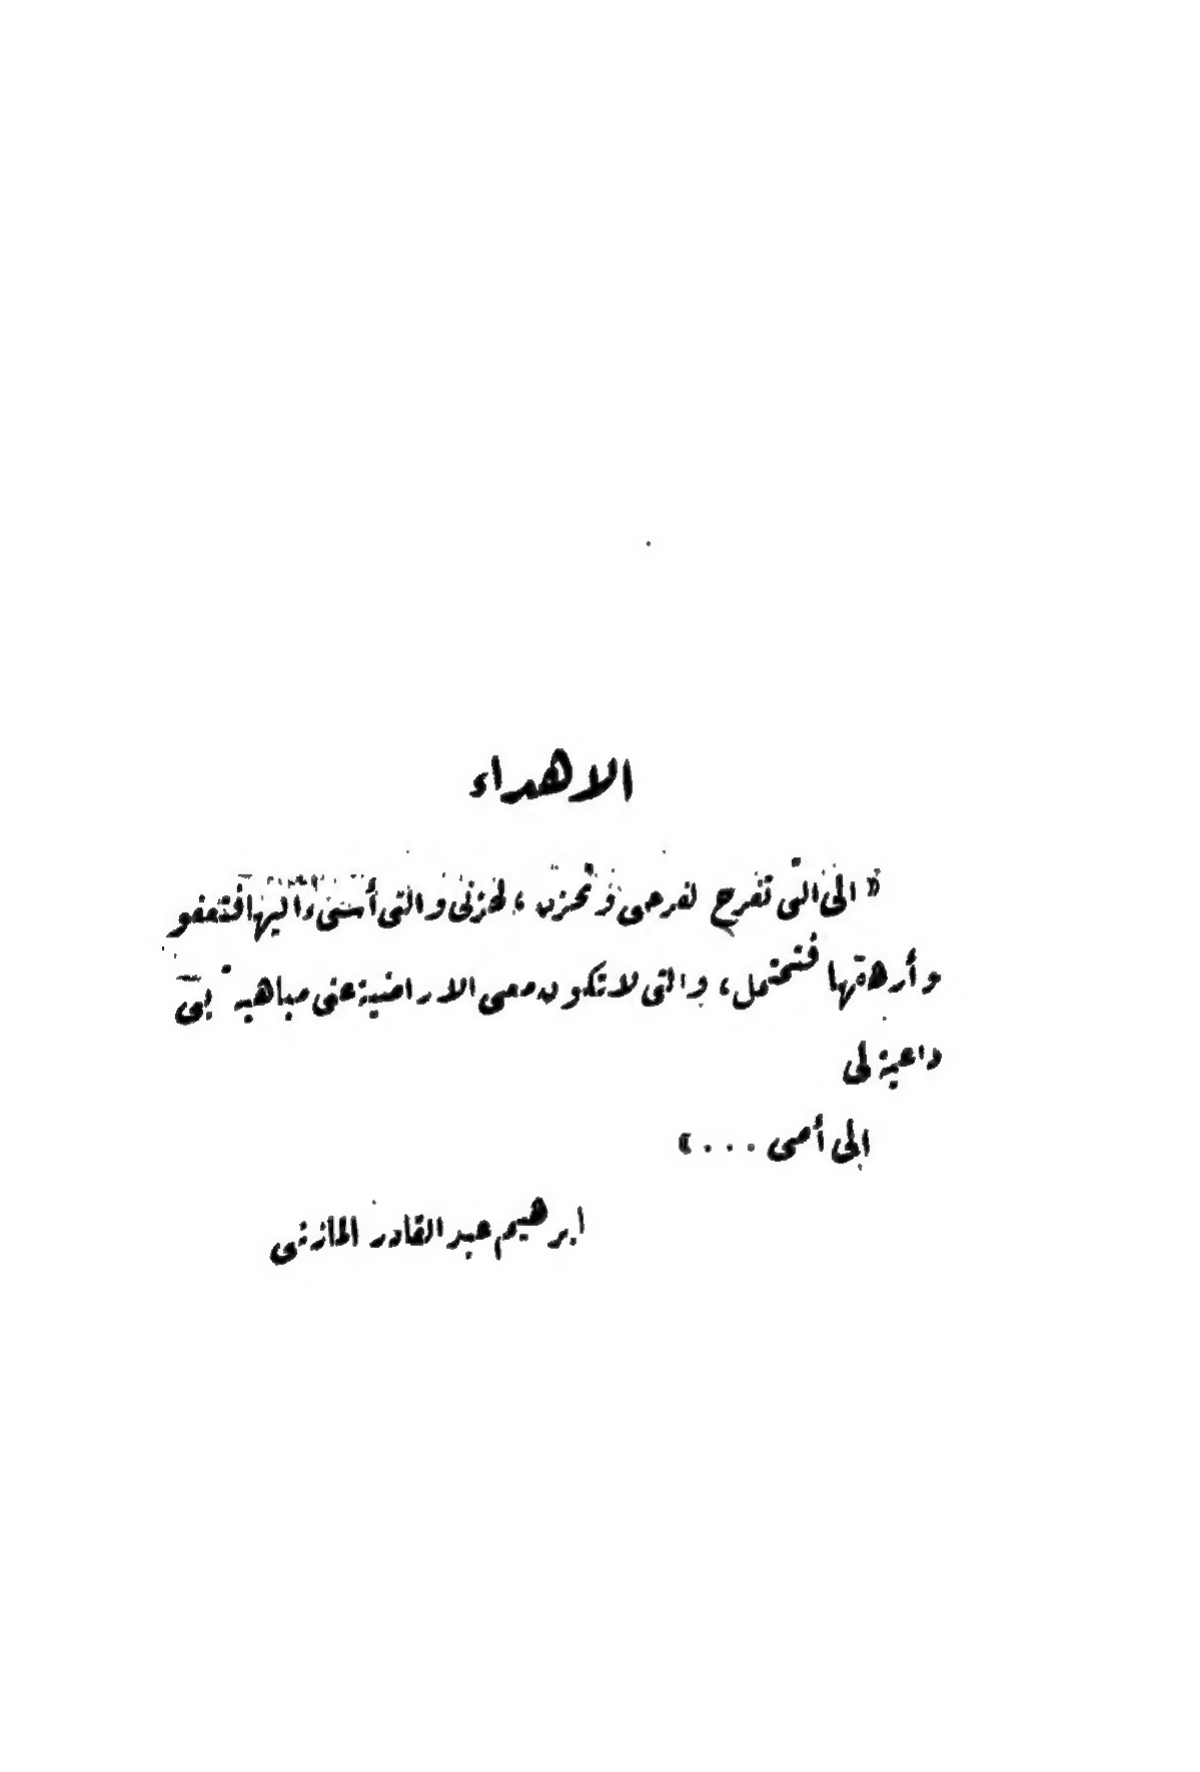 الاهداء
« الى التى تفرح لفرحى وتحزن ، لحزنى والتى أسىء اليها فتعفو
وأرهقها فتحتمل ، والتى لا تكون معى الا راضية عنى مباهية بى
داعية لى
إلى أمى . . . »
ابرهيم عبد القادر المازنى